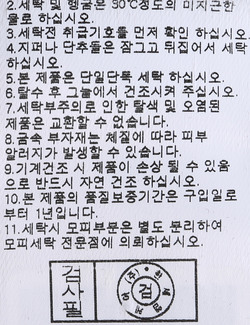 2.세탁 및 행굼은 30℃정도의 미지근한
물로 하십시오.
3.세탁전 취급기호를 먼저 확인 하십시오.
4.지퍼나 단추들은 잠그고 뒤집어서 세탁
하십시오.
5.본 제품은 단일단독 세탁 하십시오.
6.탈수 후 그늘에서 건조시켜 주십시오.
7.세탁부주의로 인한 탈색 및 오염된
제품은 교환할 수 없습니다.
8.금속 부자재는 체질에 따라 피부
알러지가 발생할 수 있습니다.
9.기계건조 시 제품이 손상 될 수 있음
으로 반드시 자연 건조 하십시오.
10.본 제품의 품질보증기간은 구입일로
부터 1년입니다.
11.세탁시 모피부분은 별도 분리하여
모피세탁 전문점에 의뢰하십시오.
검
사
필
검